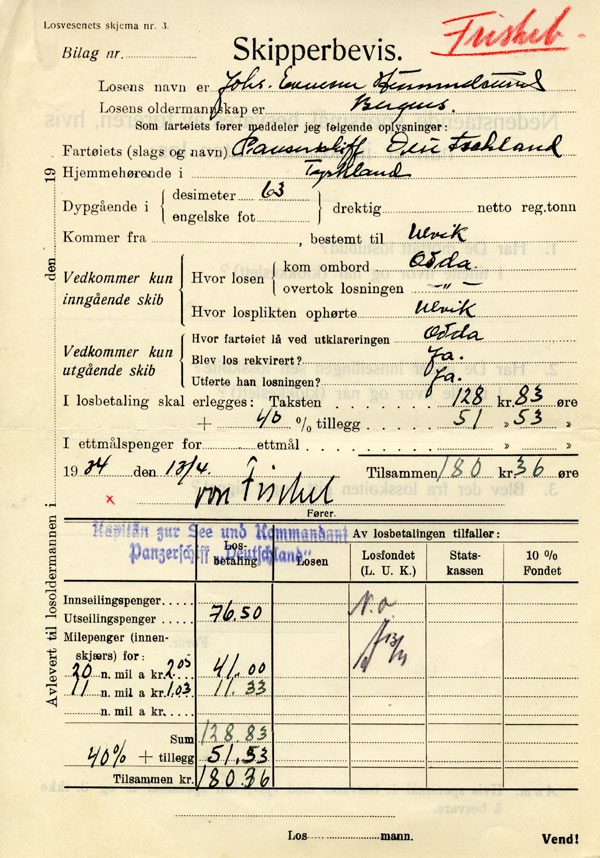 Losvesenets skjema nr. 3.
Friskeb.
Bilag nr.
Skipperbevis.
Losens navn er Johs.
Losens oldermannskap er Bergens.
Som fartøiets fører meddeler jeg følgende oplysninger:
Fartøiets (slags og navn) Panserskiff Deutschland
Hjemmehørende i Tyskland
Dypgående i { desimeter 63
engelske fot } drektig netto reg.tonn
Kommer fra , bestemt til Ulvik
Vedkommer kun inngående skib { Hvor losen { kom ombord Odda
overtok losningen -"-
Hvor losplikten ophørte Ulvik
Vedkommer kun utgående skib { Hvor fartøiet lå ved utklareringen Odda
Blev los rekvirert? Ja.
Utførte han losningen? Ja.
I losbetaling skal erlegges: Taksten 128 kr. 83 øre
+ 40 % tillegg 51 " 53 "
I ettmålspenger for ettmål " "
1934 den 13/4. Tilsammen 180 kr. 36 øre
x von Fischel
Fører.
Kapitän zur See und Kommandant
Panzerschiff „Deutschland"
Av losbetalingen tilfaller:
Los-betaling Losen Losfondet (L. U. K.) Stats-kassen 10 % Fondet
Innseilingspenger
Utseilingspenger 76.50 N.o.
Milepenger (innen-
skjærs) for:
20 n. mil a kr. 2.05 41.00
11 n. mil a kr. 1.03 11.33
n. mil a kr.
Sum 128.83
40% + tillegg 51.53
Tilsammen kr. 180.36
Los mann.
Vend!
Avlevert til losoldermannen i den 19